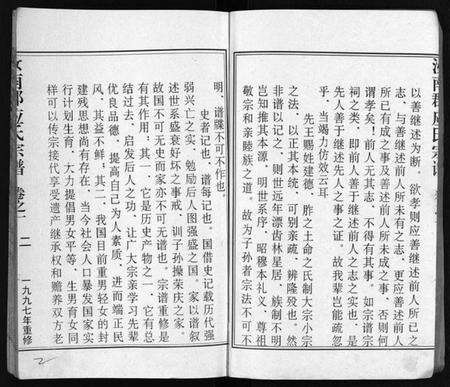 汝南郡应氏宗谱
以善继述为断，欲孝则应善继述前人所已之
志，与善继述前人所未有之志，更应善继述前人
所已有成之事及善述前人所未成之事，否则何
谓孝矣！前人无其志，不得有其事。如宗谱宗
祠之类，即前人善于继述前人之志之实也，是
先人善于继述先人之事之证。故我辈岂能疏忽
乎，当竭力仿效云耳
先王赐姓建德，胙之土命之氏制大宗小宗
之法，以正其本统，可别亲疏，辨隆殺也。然
非谱以记之，则世远年漂齿林星居，族制不明
岂知推其本源，明世系序，昭穆本礼义，尊祖
敬宗和亲睦族之道。故为子孙者宗法不可不
明，谱牒不可不作也。
史者记也，谱每记也。国借史记载历代强
弱兴亡之实，勉励后人图强盛之国。家以谱叙
述世系盛衰好坏之事戒，训子孙操荣庆之家。
故国不可无史而家亦不可无谱也。宗谱重修是
有其作用：其一，它是历史产物之一，它有总
结过去，启发后人之功，让广大宗亲学习先辈
优良品德，提高自己为人素质，进而端正民
风，其益不鲜；其二，我国目前重男轻女的封
建残思想尚有存在，当今社会人口暴发国家实
行计划生育，大力提倡男女平等，生男育女同
样可以传宗接代享受遗产继承权和赡养双方老
汝南郡应氏宗谱 卷之一 二 一九九七年重修
2